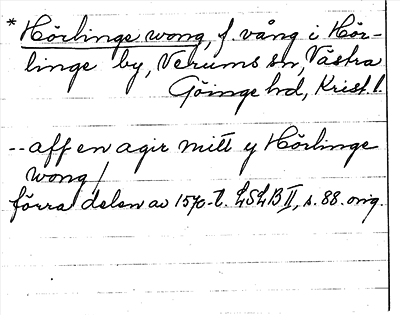 * Hörlinge wong, f. vång i Hör-
linge by, Verums sn, Västra
Göinge hd, Krist. l.
-- aff en agir mitt y Hörlinge
wong /
förra delen av 1570-t. LSLB II, s. 88. orig.